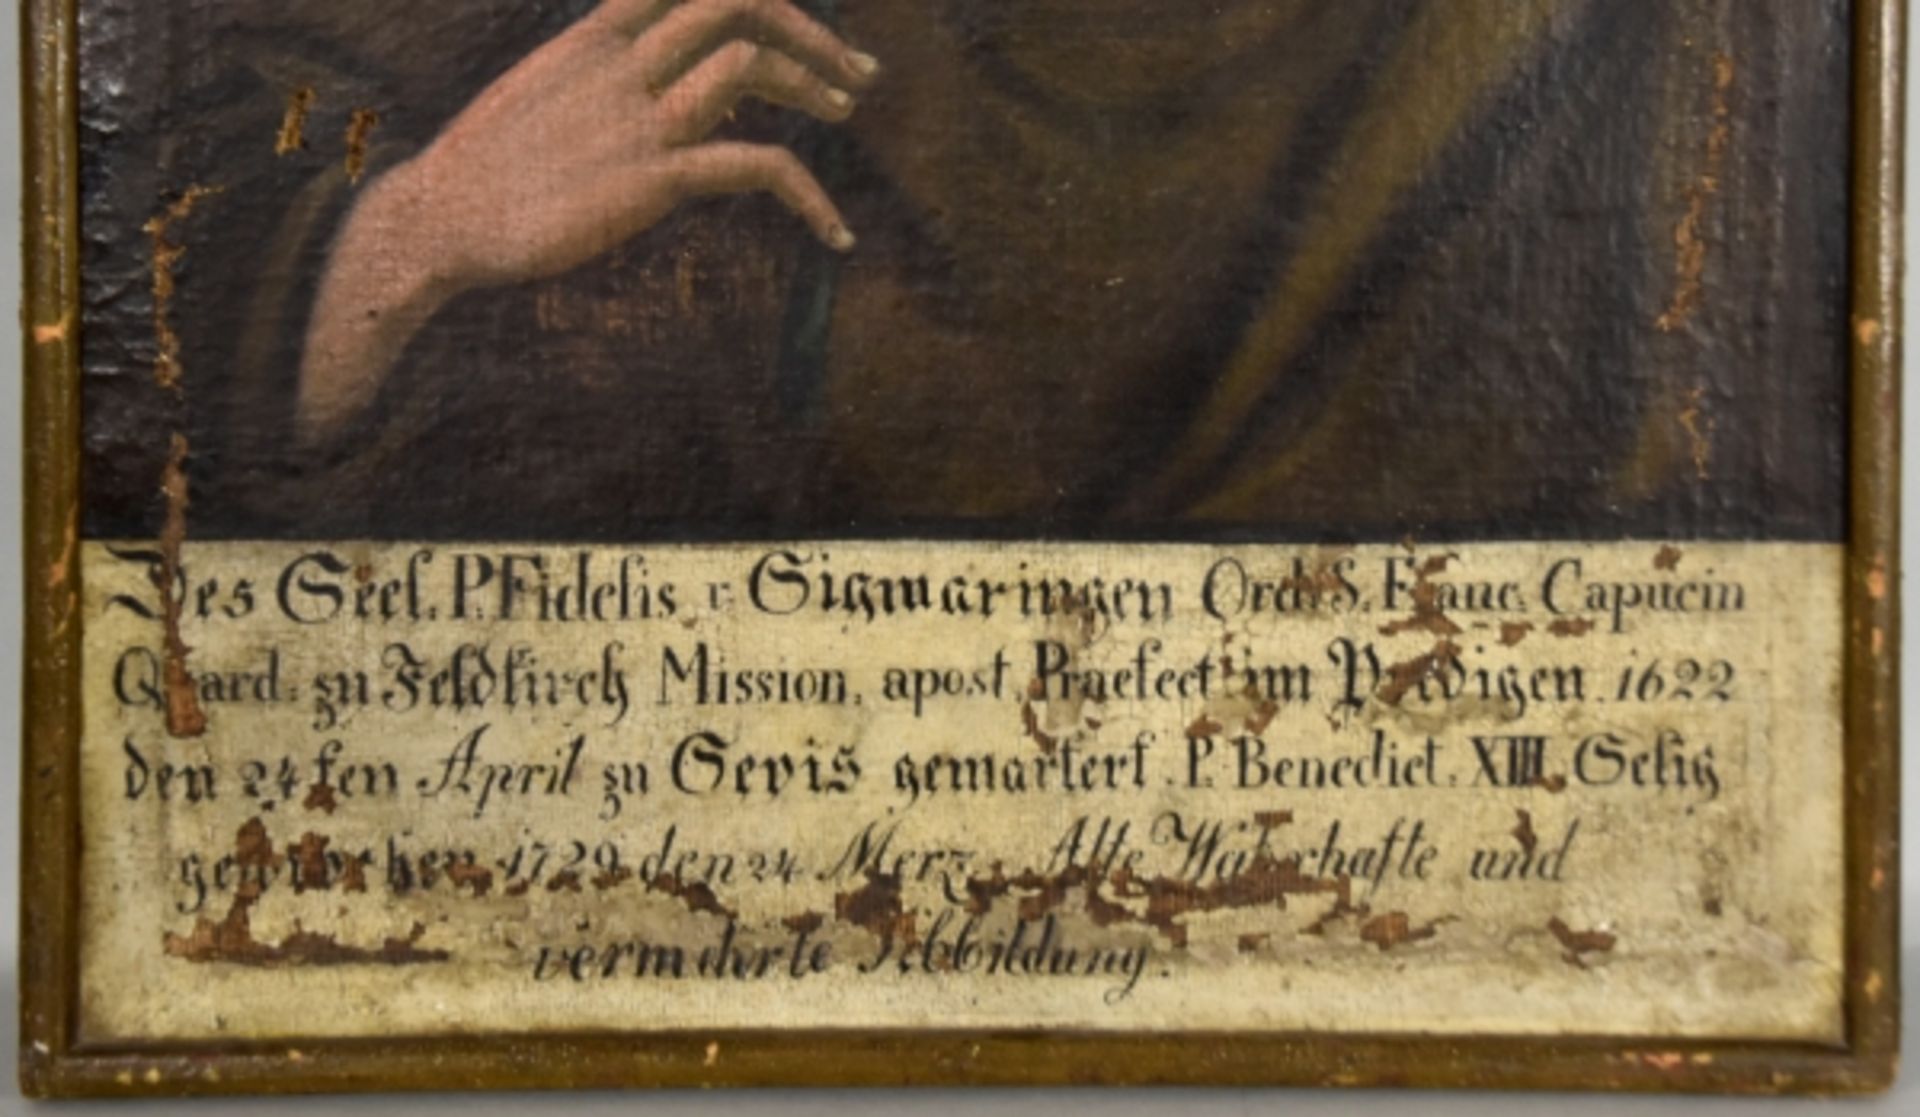 Des Seel. P. Fidelis v. Sigmaringen Ord. S. Franc. Capucin
Quard: zu Feldkirch Mission, apost. Praefect im Predigen. 1622
den 24ten April zu Sevis gemartert. P. Benedict. XIII. Selig
gesprochen 1729 den 24 Merz. Alte Wahrhafte und
vermehrte Abbildung.